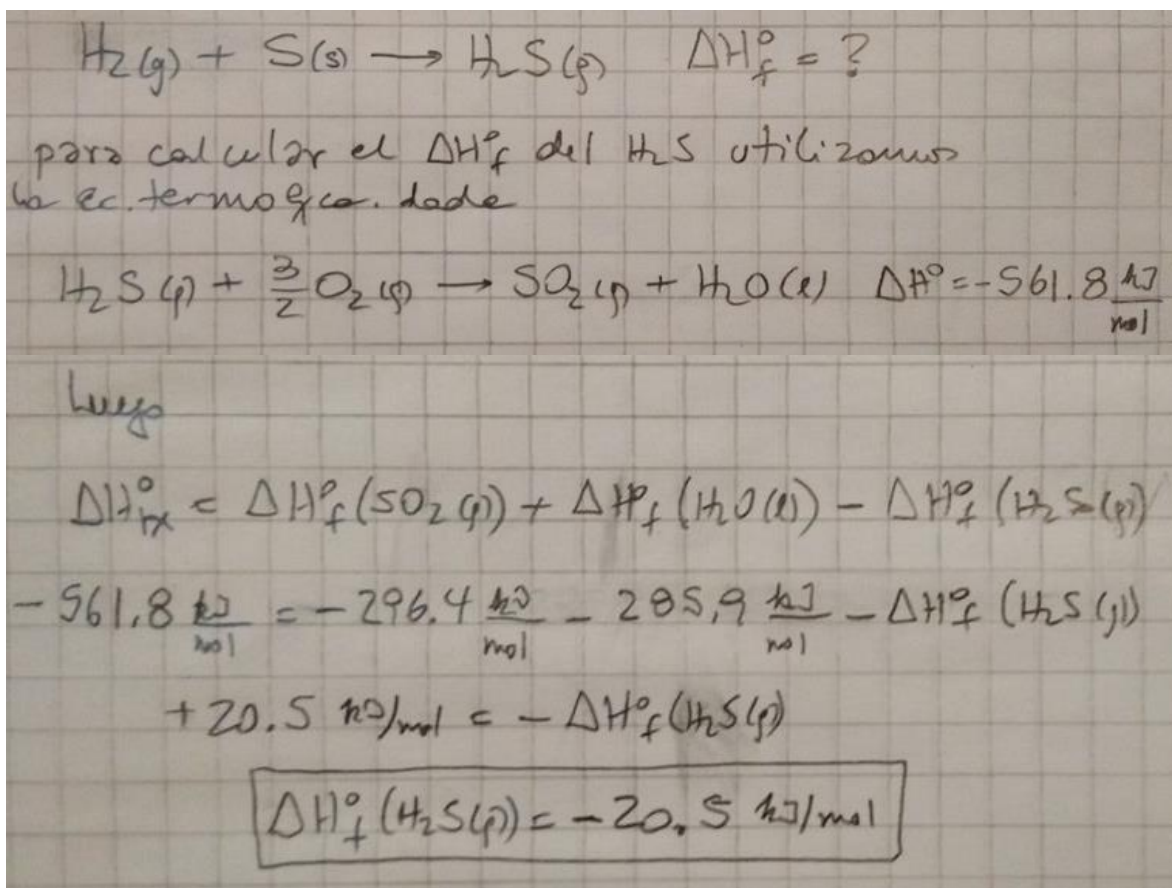 H₂(g) + S(s) → H₂S(g) ΔH°f = ?
para calcular el ΔH°f del H₂S utilizamos
la ec. termoqca. dada
H₂S(g) + 3/2 O₂(g) → SO₂(g) + H₂O(l) ΔH° = -561.8 kJ/mol
Luego
ΔH°rx = ΔH°f(SO₂(g)) + ΔH°f(H₂O(l)) - ΔH°f(H₂S(g))
-561,8 kJ/mol = -296.4 kJ/mol - 285,9 kJ/mol - ΔH°f(H₂S(g))
+20.5 kJ/mol = -ΔH°f(H₂S(g))
ΔH°f(H₂S(g)) = -20.5 kJ/mol